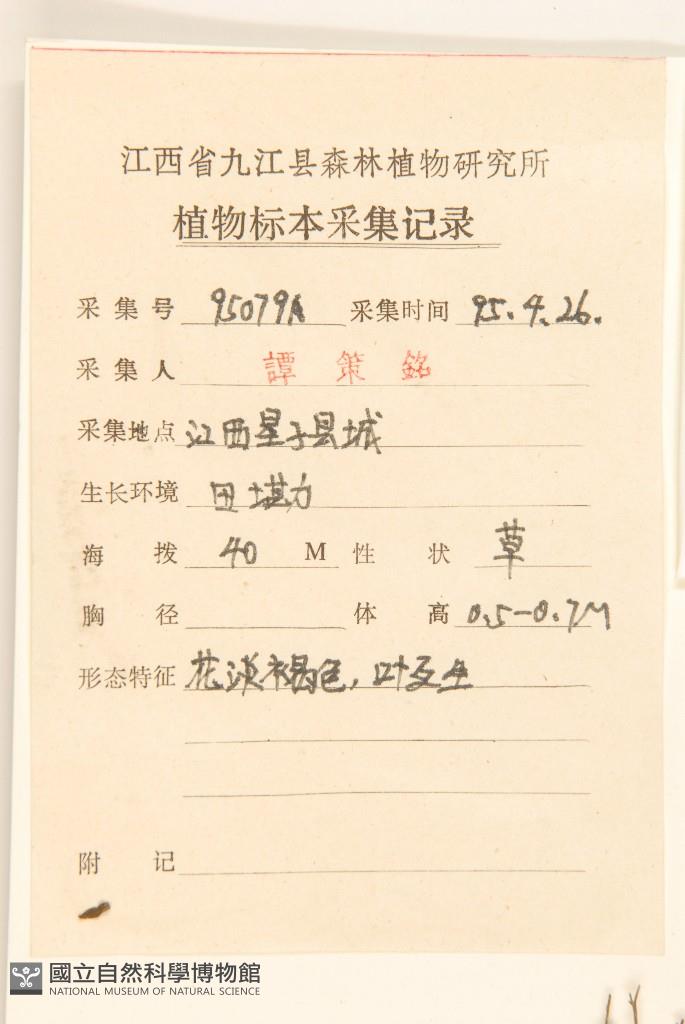 江西省九江县森林植物研究所
植物标本采集记录
采集号 95079A 采集时间 95.4.26.
采集人 譚策銘
采集地点 江西星子县城
生长环境 田堪边
海拨 40 M 性状 草
胸径 体高 0.5-0.7M
形态特征 花淡褐色,叶互生
附记
國立自然科學博物館
NATIONAL MUSEUM OF NATURAL SCIENCE